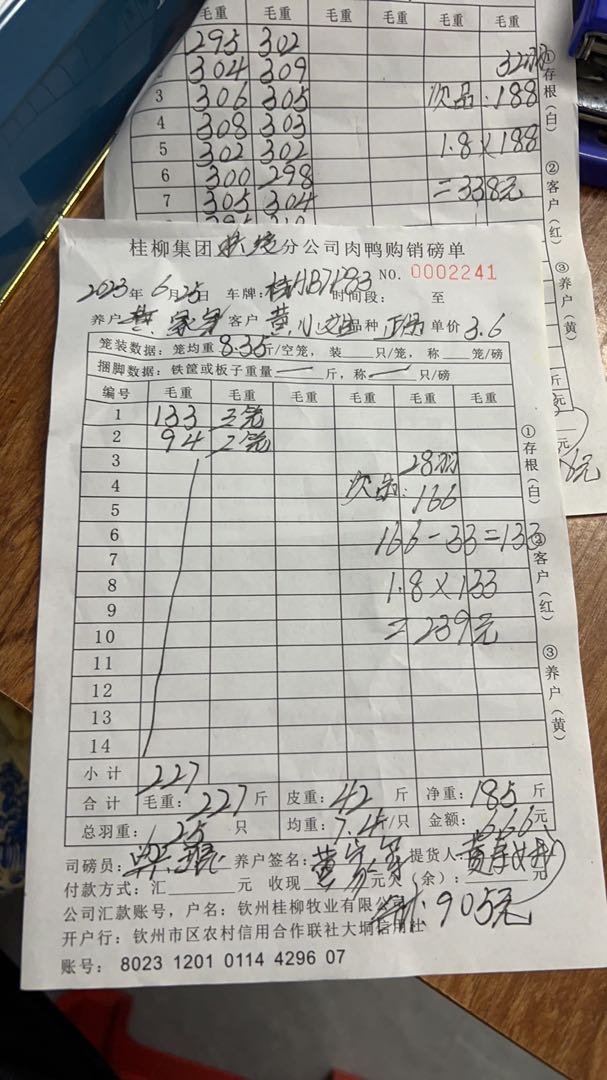 毛重 毛重 毛重 毛重 毛重
295 302
304 309 32羽
3 306 305 次品:188
4 308 303
5 302 302 1.8×188
6 300 298 =338元
7 305 304
①存根(白) ②客户(红) ③养户(黄)
斤
元
元
桂柳集团 分公司肉鸭购销磅单
2023年6月25日 车牌: 时间段: 至 NO. 0002241
养户 客户 黄小 品种 正品 单价 3.6
笼装数据:笼均重8.35斤/空笼,装 只/笼,称 笼/磅
捆脚数据:铁筐或板子重量 斤,称 只/磅
编号 毛重 毛重 毛重 毛重 毛重 毛重
1 133 3笼
2 94 2笼
3 28羽
4 次品:166
5
6 166-33=133
7
8 1.8×133
9
10 =239元
11
12
13
14
小计 227
合计 毛重:227斤 皮重:42斤 净重:185斤
总羽重:25只 均重:7.4/只 金额:666元
司磅员: 养户签名: 提货人:
付款方式:汇 元 收现 元欠(余): 元
公司汇款账号,户名:钦州桂柳牧业有限公司 905元
开户行:钦州市区农村信用合作联社大垌信用社
账号:8023 1201 0114 4296 07
①存根(白) ②客户(红) ③养户(黄)